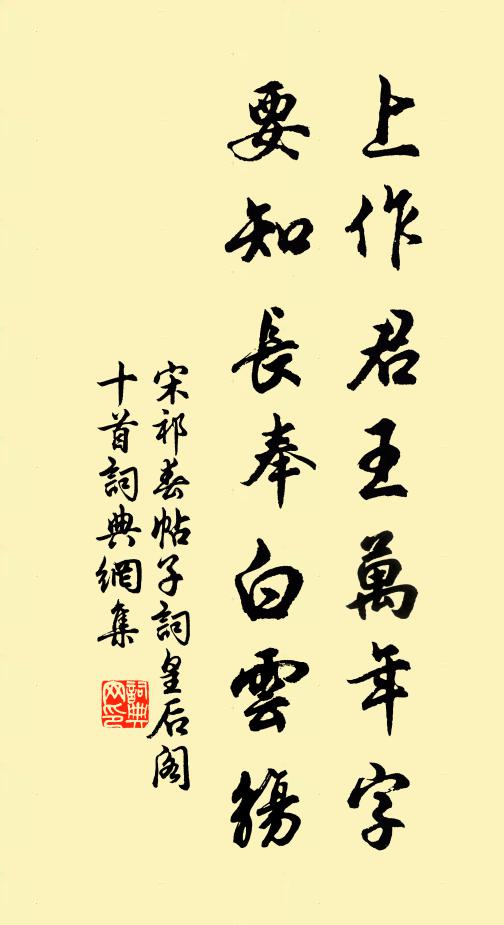 上作君王萬年字
要知長奉白雲觴
宋祁春帖子詞皇后閣
十首詞典網集
詞典网印